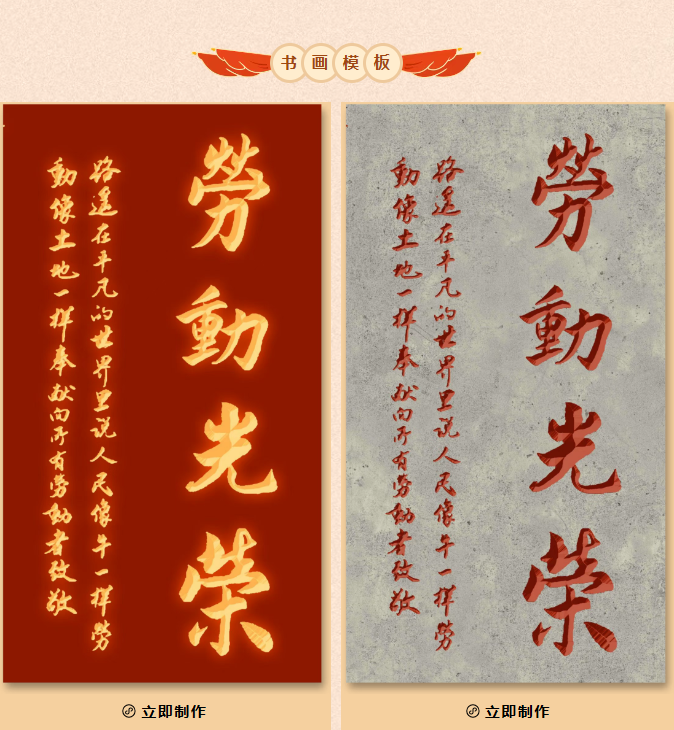 书画模板
勞動光荣
路遥在平凡的世界里说人民像牛一样劳
動像土地一样奉献向所有劳動者致敬
立即制作
勞動光荣
路遥在平凡的世界里说人民像牛一样劳
動像土地一样奉献向所有劳動者致敬
立即制作